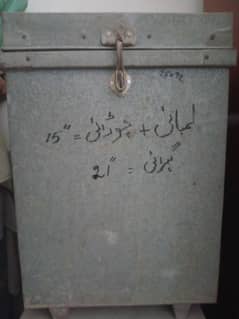 لمبائی + چوڑائی = "15
گہرائی = "21